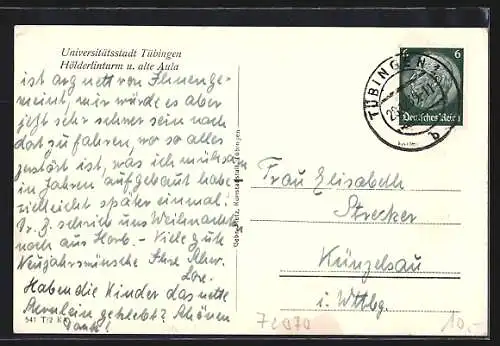 Universitätsstadt Tübingen
Hölderlinturm u. alte Aula
ist arg nett von Ihnen ge-
meint, mir würde es aber
jetzt sehr schwer sein nach
dort zu fahren, wo so alles
zerstört ist, was ich mühsam
in Jahren aufgebaut habe
vielleicht später einmal.
schrieb uns Weihnachten
noch aus Horb. – Viele gute
Neujahrswünsche Ihre
Lore.
Haben die Kinder das nette
geklebt? Schönen
Dank!
541 T/2
TÜBINGEN
b
6
Deutsches Reich
Gebr. Metz, Kunstanstalt, Tübingen
Frau Elisabeth
Strecker
Künzelsau
i. Wttbg
10.-